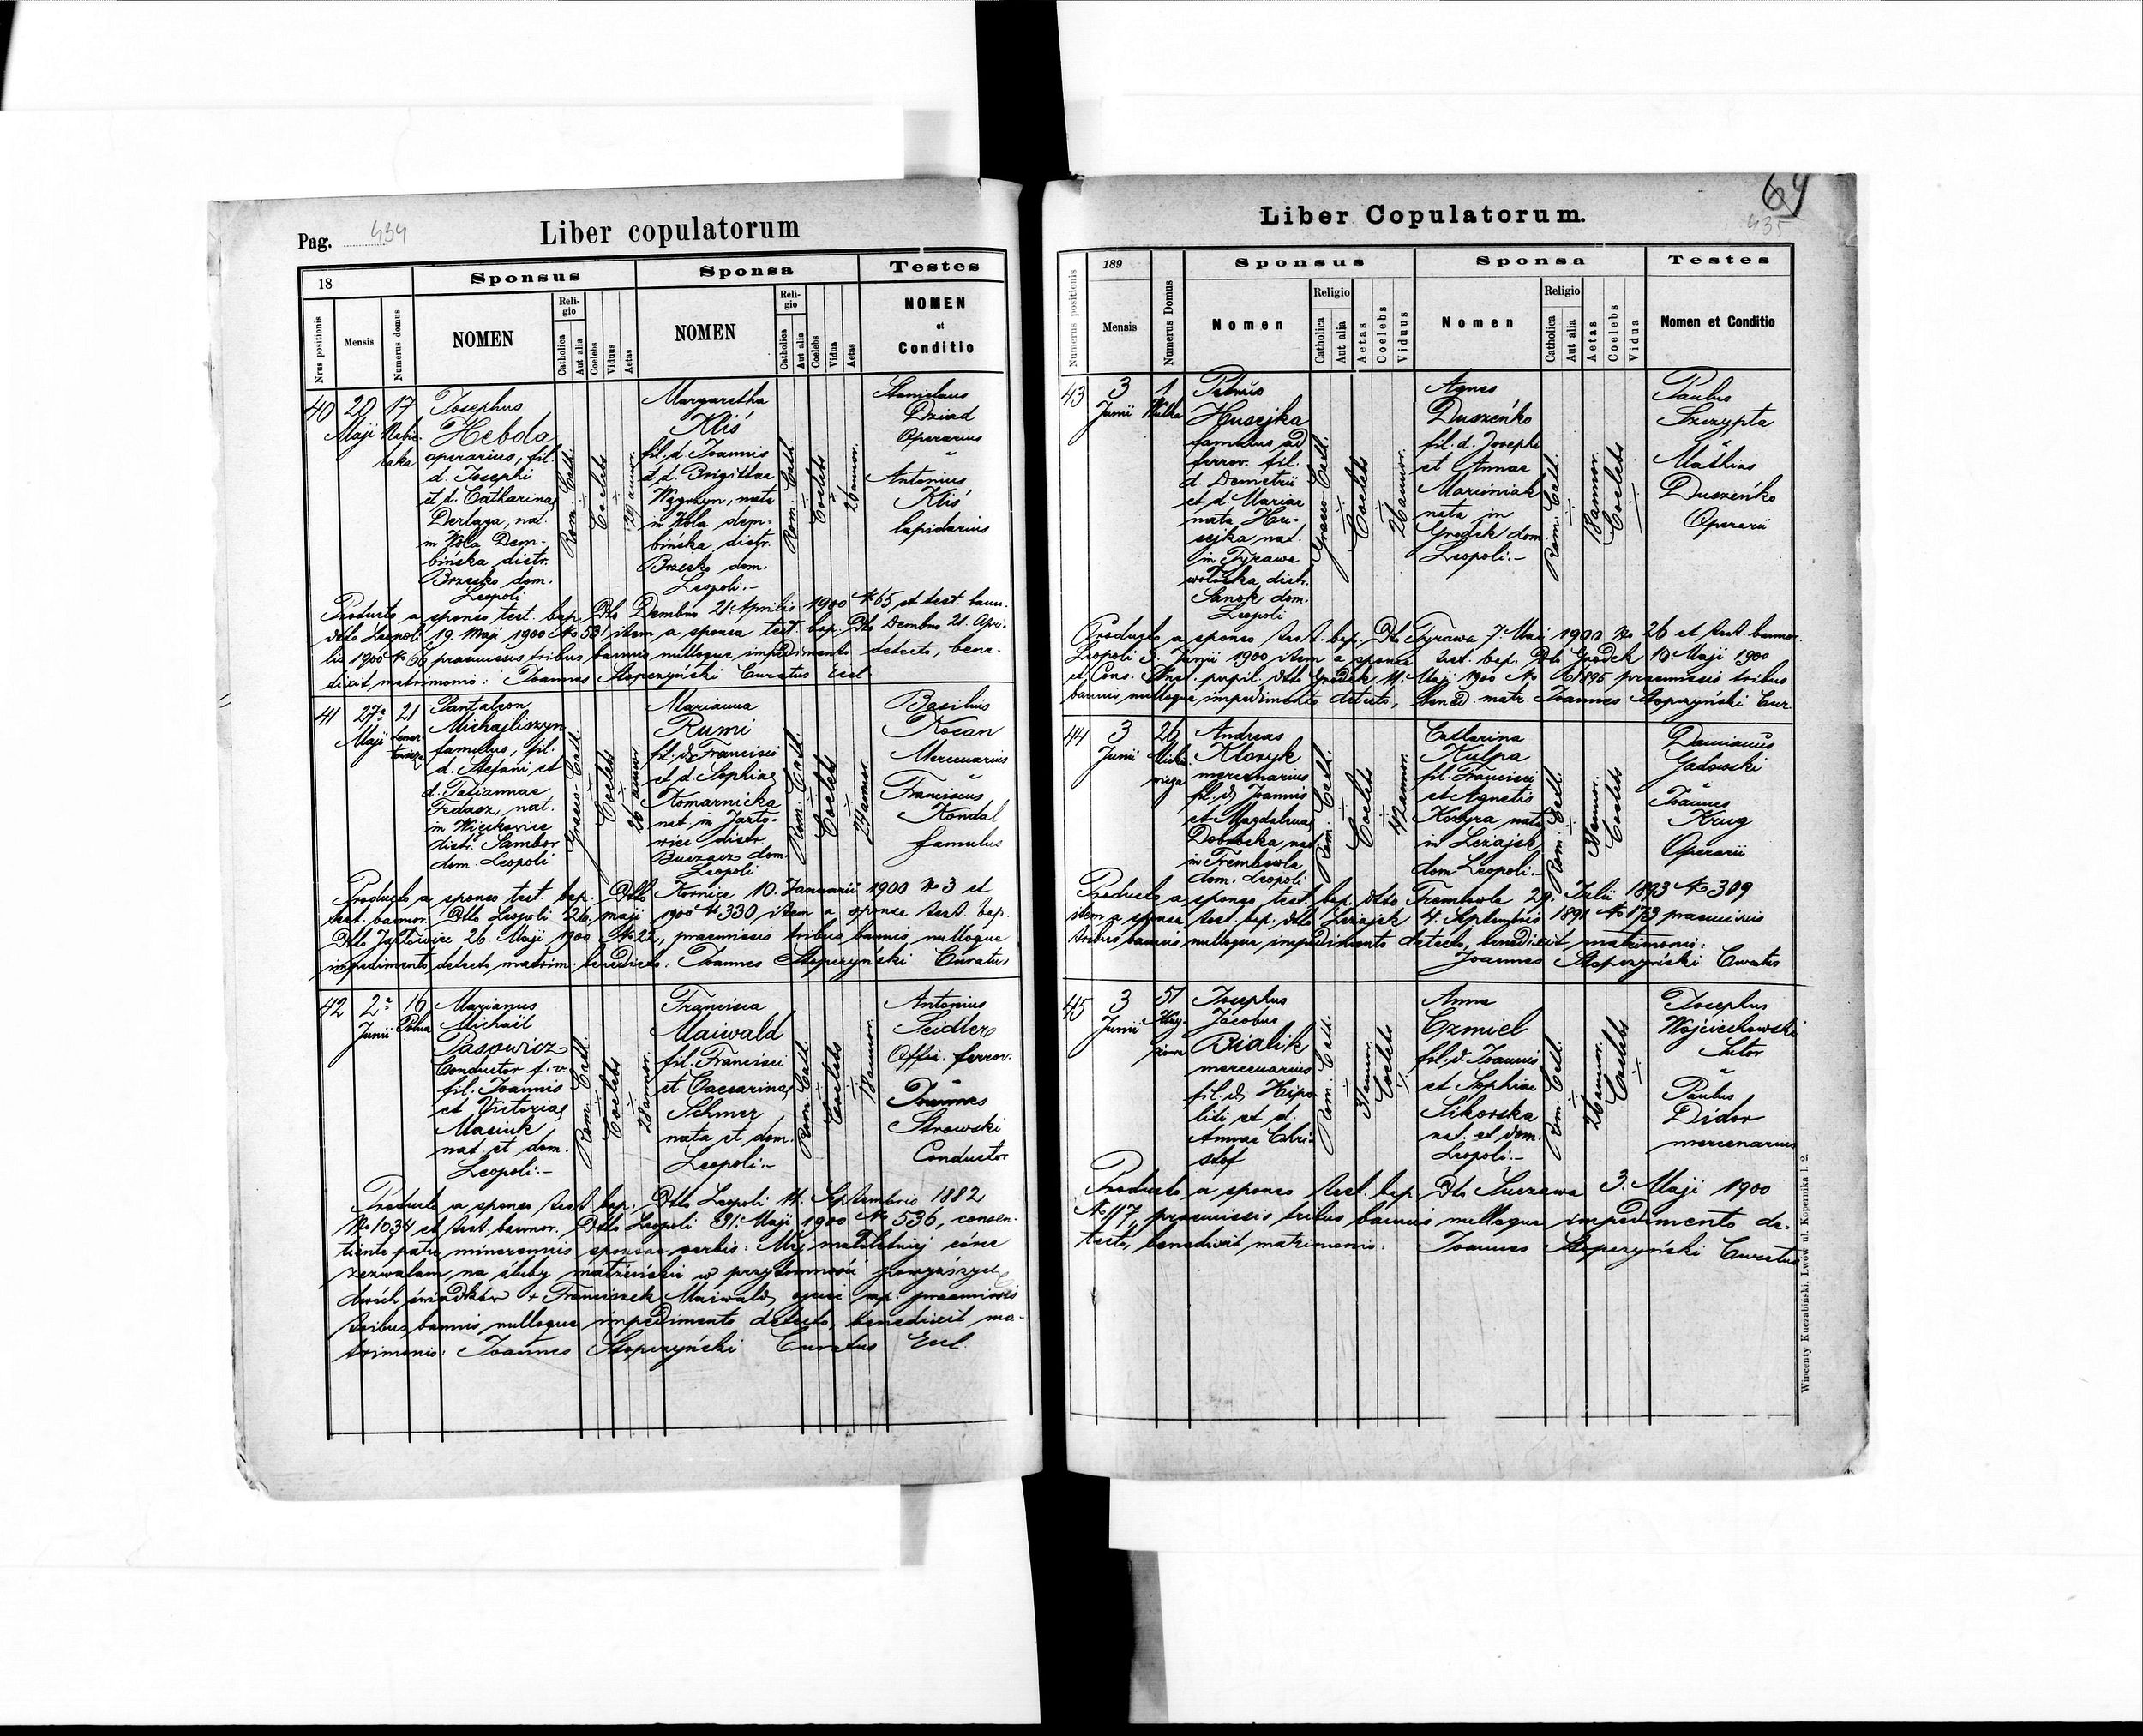 Pag. 434
Liber copulatorum
18
Sponsus
Sponsa
Testes
Nrus positionis
Mensis
Numerus domus
NOMEN
Religio
Catholica
Aut alia
Coelebs
Viduus
Aetas
NOMEN
Religio
Catholica
Aut alia
Coelebs
Vidua
Aetas
NOMEN
et
Conditio
40
20
Maji
17
Josephus
Hebda
operarius, fil.
d. Josephi
et d. Catharinae
Derlaga, nat.
in Wola Dem-
bińska distr.
Brzesko dom.
Leopoli
Rom. Cath.
Coelebs
29 annor.
Margaretha
Kliś
fil. d. Joannis
et d. Brigittae
Węgrzyn, nata
in Wola dem-
bińska distr.
Brzesko dom.
Leopoli.-
Rom. Cath.
Coelebs
26 annor.
Stanislaus
Dziad
Operarius
Antonius
Kliś
lapidarius
Producto a sponso test. bap. Dto Dembno 21 Aprilis 1900 N 65 et test. bann.
dto Leopoli 19. Maji 1900 No 531 item a sponsa test. bap. Dto Dembno 21. Apri-
lis 1900 N 66 praemissis tribus bannis nulloque impedimento detecto, bene-
dixit matrimonio: Joannes Stopczyński Curatus Eccl.
41
27a
Maji
21
Pantaleon
Michajliszyn
famulus, fil.
d. Stefani et
d. Tatiannae
Fedasz, nat.
in Więckowice
distr. Sambor
dom. Leopoli
Graeco-Cath.
Coelebs
26 annor.
Marianna
Rumi
fil. d. Francisci
et d. Sophiae
Komarnicka
nat. in Jazło-
wice distr.
Buczacz dom.
Leopoli
Rom. Cath.
Coelebs
24 annor.
Basilius
Kocan
Mercenarius
Franciscus
Kondal
famulus
Producto a sponso test. bap. Dto Kornice 10. Januarii 1900 No 3 et
test. bannor. Dto Leopoli 26. maji 1900 N 330 item a sponsa test. bap.
Dto Jazłowice 26 Maji 1900 No 22, praemissis tribus bannis, nulloque
impedimento detecto matrim. benedicto: Joannes Stopczyński Curatus
42
2a
Junii
16
Polna
Marianus
Michaël
Pasowicz
Conductor f. v.
fil. Joannis
et Victoriae
Masiuk
nat. et dom.
Leopoli.-
Rom. Cath.
Coelebs
28 annor.
Francisca
Maiwald
fil. Francisci
et Caesarinae
Schmer
nata et dom.
Leopoli.-
Rom. Cath.
Coelebs
18 annor.
Antonius
Seidler
Offic. ferrov.
Joannes
Strowski
Conductor
Producto a sponso test. bap. Dto Leopoli 11. Septembris 1882
No 1034 et test. bannor. Dto Leopoli 31. Maji 1900 No 536, consen-
tiente patre minorennis sponsae verbis: Mej małoletniej córce
zezwalam na śluby małżeńskie w przytomności powyższych
dwóch świadków + Franciszek Maiwald, ojciec mp. praemissis
tribus bannis nulloque impedimento detecto, benedixit ma-
trimonio: Joannes Stopczyński Curatus Eccl.
69
435
Liber Copulatorum.
189
Sponsus
Sponsa
Testes
Numerus positionis
Mensis
Numerus Domus
Nomen
Religio
Catholica
Aut alia
Aetas
Coelebs
Viduus
Nomen
Religio
Catholica
Aut alia
Aetas
Coelebs
Vidua
Nomen et Conditio
43
3
Junii
1
Wulka
Petrus
Husejka
famulus ad
ferrov. fil.
d. Demetrii
et d. Mariae
nata Hu-
sejka, nat.
in Tyrawa
wołoska distr.
Sanok dom.
Leopoli
Graeco-Cath.
Coelebs
26 annor.
Agnes
Duszeńko
fil. d. Josephi
et Annae
Mariniak
nata in
Gródek dom.
Leopoli.-
Rom. Cath.
18 annor.
Coelebs
Paulus
Szczypta
Mathias
Duszeńko
Operarii
Producto a sponso test. bap. Dto Tyrawa 7. Maji 1900 No 26 et test. bannor.
Leopoli 3. Junii 1900 item a sponsa test. bap. Dto Gródek 10. Maji 1900
et Cons. Inst. pupil. dto Gródek 11. Maji 1900 No 6/895 praemissis tribus
bannis nulloque impedimento detecto, bened. matr. Joannes Stopczyński Cur.
44
3
Junii
26
Andreas
Klozyk
mercenarius
fil. d. Joannis
et Magdalenae
Dobrocka, nat.
in Trembowla
dom. Leopoli
Rom. Cath.
Coelebs
42 annor.
Catharina
Kulpa
fil. Francisci
et Agnetis
Kozyra nata
in Leżajsk,
dom. Leopoli.-
Rom. Cath.
Coelebs
Damianus
Gadowski
Joannes
Krug
Operarii
Producto a sponso test. bap. dto Trembowla 29. Julii 1893 No 309
item a sponsa test. bap. dto Leżajsk 4. Septembris 1891 No 173 praemissis
tribus bannis nulloque impedimento detecto, benedixit matrimonio:
Joannes Stopczyński Curatus
45
3
Junii
51
Josephus
Jacobus
Bialik
mercenarius
fil. d. Hipo-
liti et d.
Annae Chri-
stof
Rom. Cath.
31 annor.
Coelebs
Anna
Czmiel
fil. d. Joannis
et Sophiae
Sikorska
nat. et dom.
Leopoli.-
Rom. Cath.
26 annor.
Coelebs
Josephus
Wojciechowski
Sutor
Paulus
Didor
mercenarius
Producto a sponso test. bap. Dto Suczawa 3. Maji 1900
No 117, praemissis tribus bannis nulloque impedimento de-
tecto, benedixit matrimonio: Joannes Stopczyński Curatus
Wincenty Kuczabiński, Lwów ul. Kopernika l. 2.